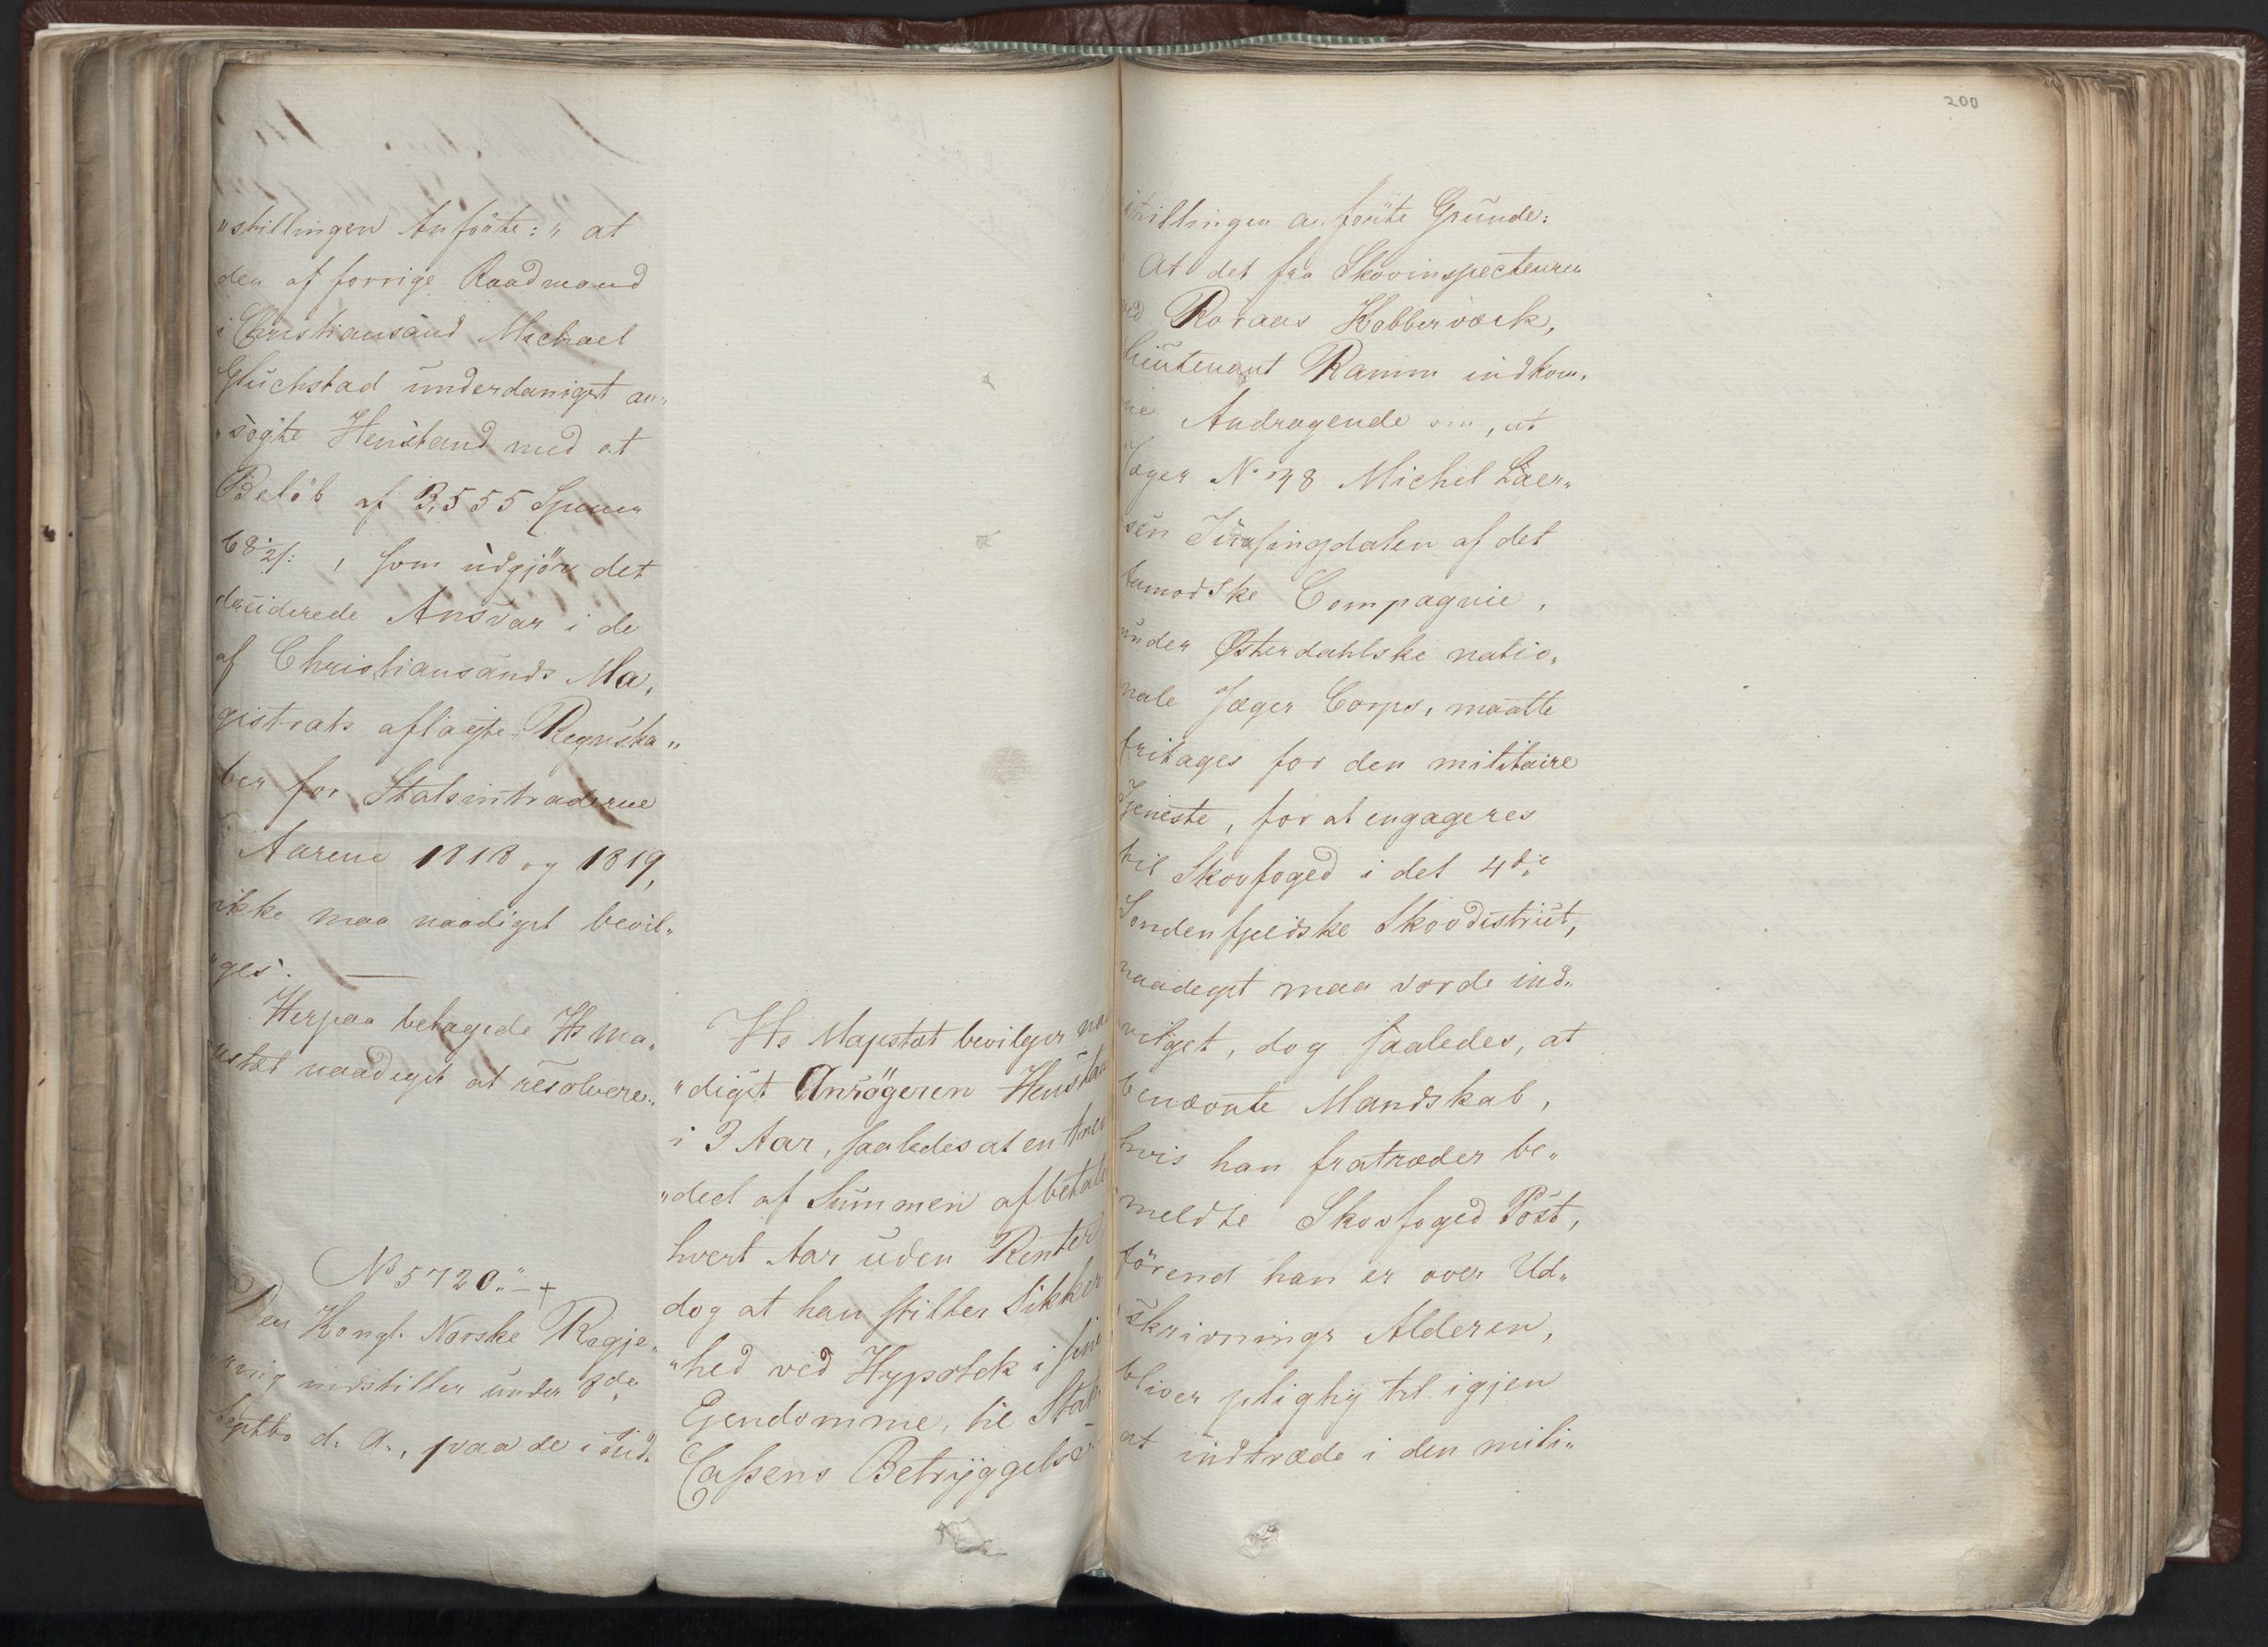 "stillingen Anförte:" at
den af forrige Raadmand
i Christiansand Michael
Glückstad underdanigst an„
„sögte Henstand med at
Belöb af 3,555 Specier
68½ s:, som udgjör det
deciderede Ansvar i de
af Christiansands Ma„
gistrats aflagte Regnska„
ber for Statsintraderne
Aarene 1818 og 1819,
ikke maa naadigst bevil„
„ges. —
Herpaa behagede Hs Ma„
jestæt naadigst at resolvere:
No 5720.
Den Kongl. Norske Regje„
„ring indstiller under 8de
Septbr d. A., paa de i Ind„
Hs Majestæt bevilger naa
„digst Ansögeren Henstand
i 3 Aar, saaledes at en Tre
„deel af Summen afbetales
hvert Aar uden Renter
dog at han stiller Sikker
„hed ved Hypothek i sine
Ejendomme, til Stats
Cassens Betryggelse
200
stillingen anförte Grunde:
At det fra Skovinspecteuren
ved Röraas Kobberværk,
Lieutenant Ramm indkom„
ne Andragende om, at
Jæger No 98 Michel Laer„
sen af det
Compagnie,
under Østerdahlske natio„
nale Jæger Corps, maatte
fritages for den militaire
Tjeneste, for at engageres
til Skovfoged i det 4de
Søndenfjeldske Skovdistrict,
naadigst maa vorde ind„
vilget, dog saaledes, at
benævnte Mandskab,
hvis han fratræder be„
meldte Skovfoged Post,
förend han er over Ud„
skrivnings Alderen,
bliver pligtig til igjen
at indtræde i den mili„